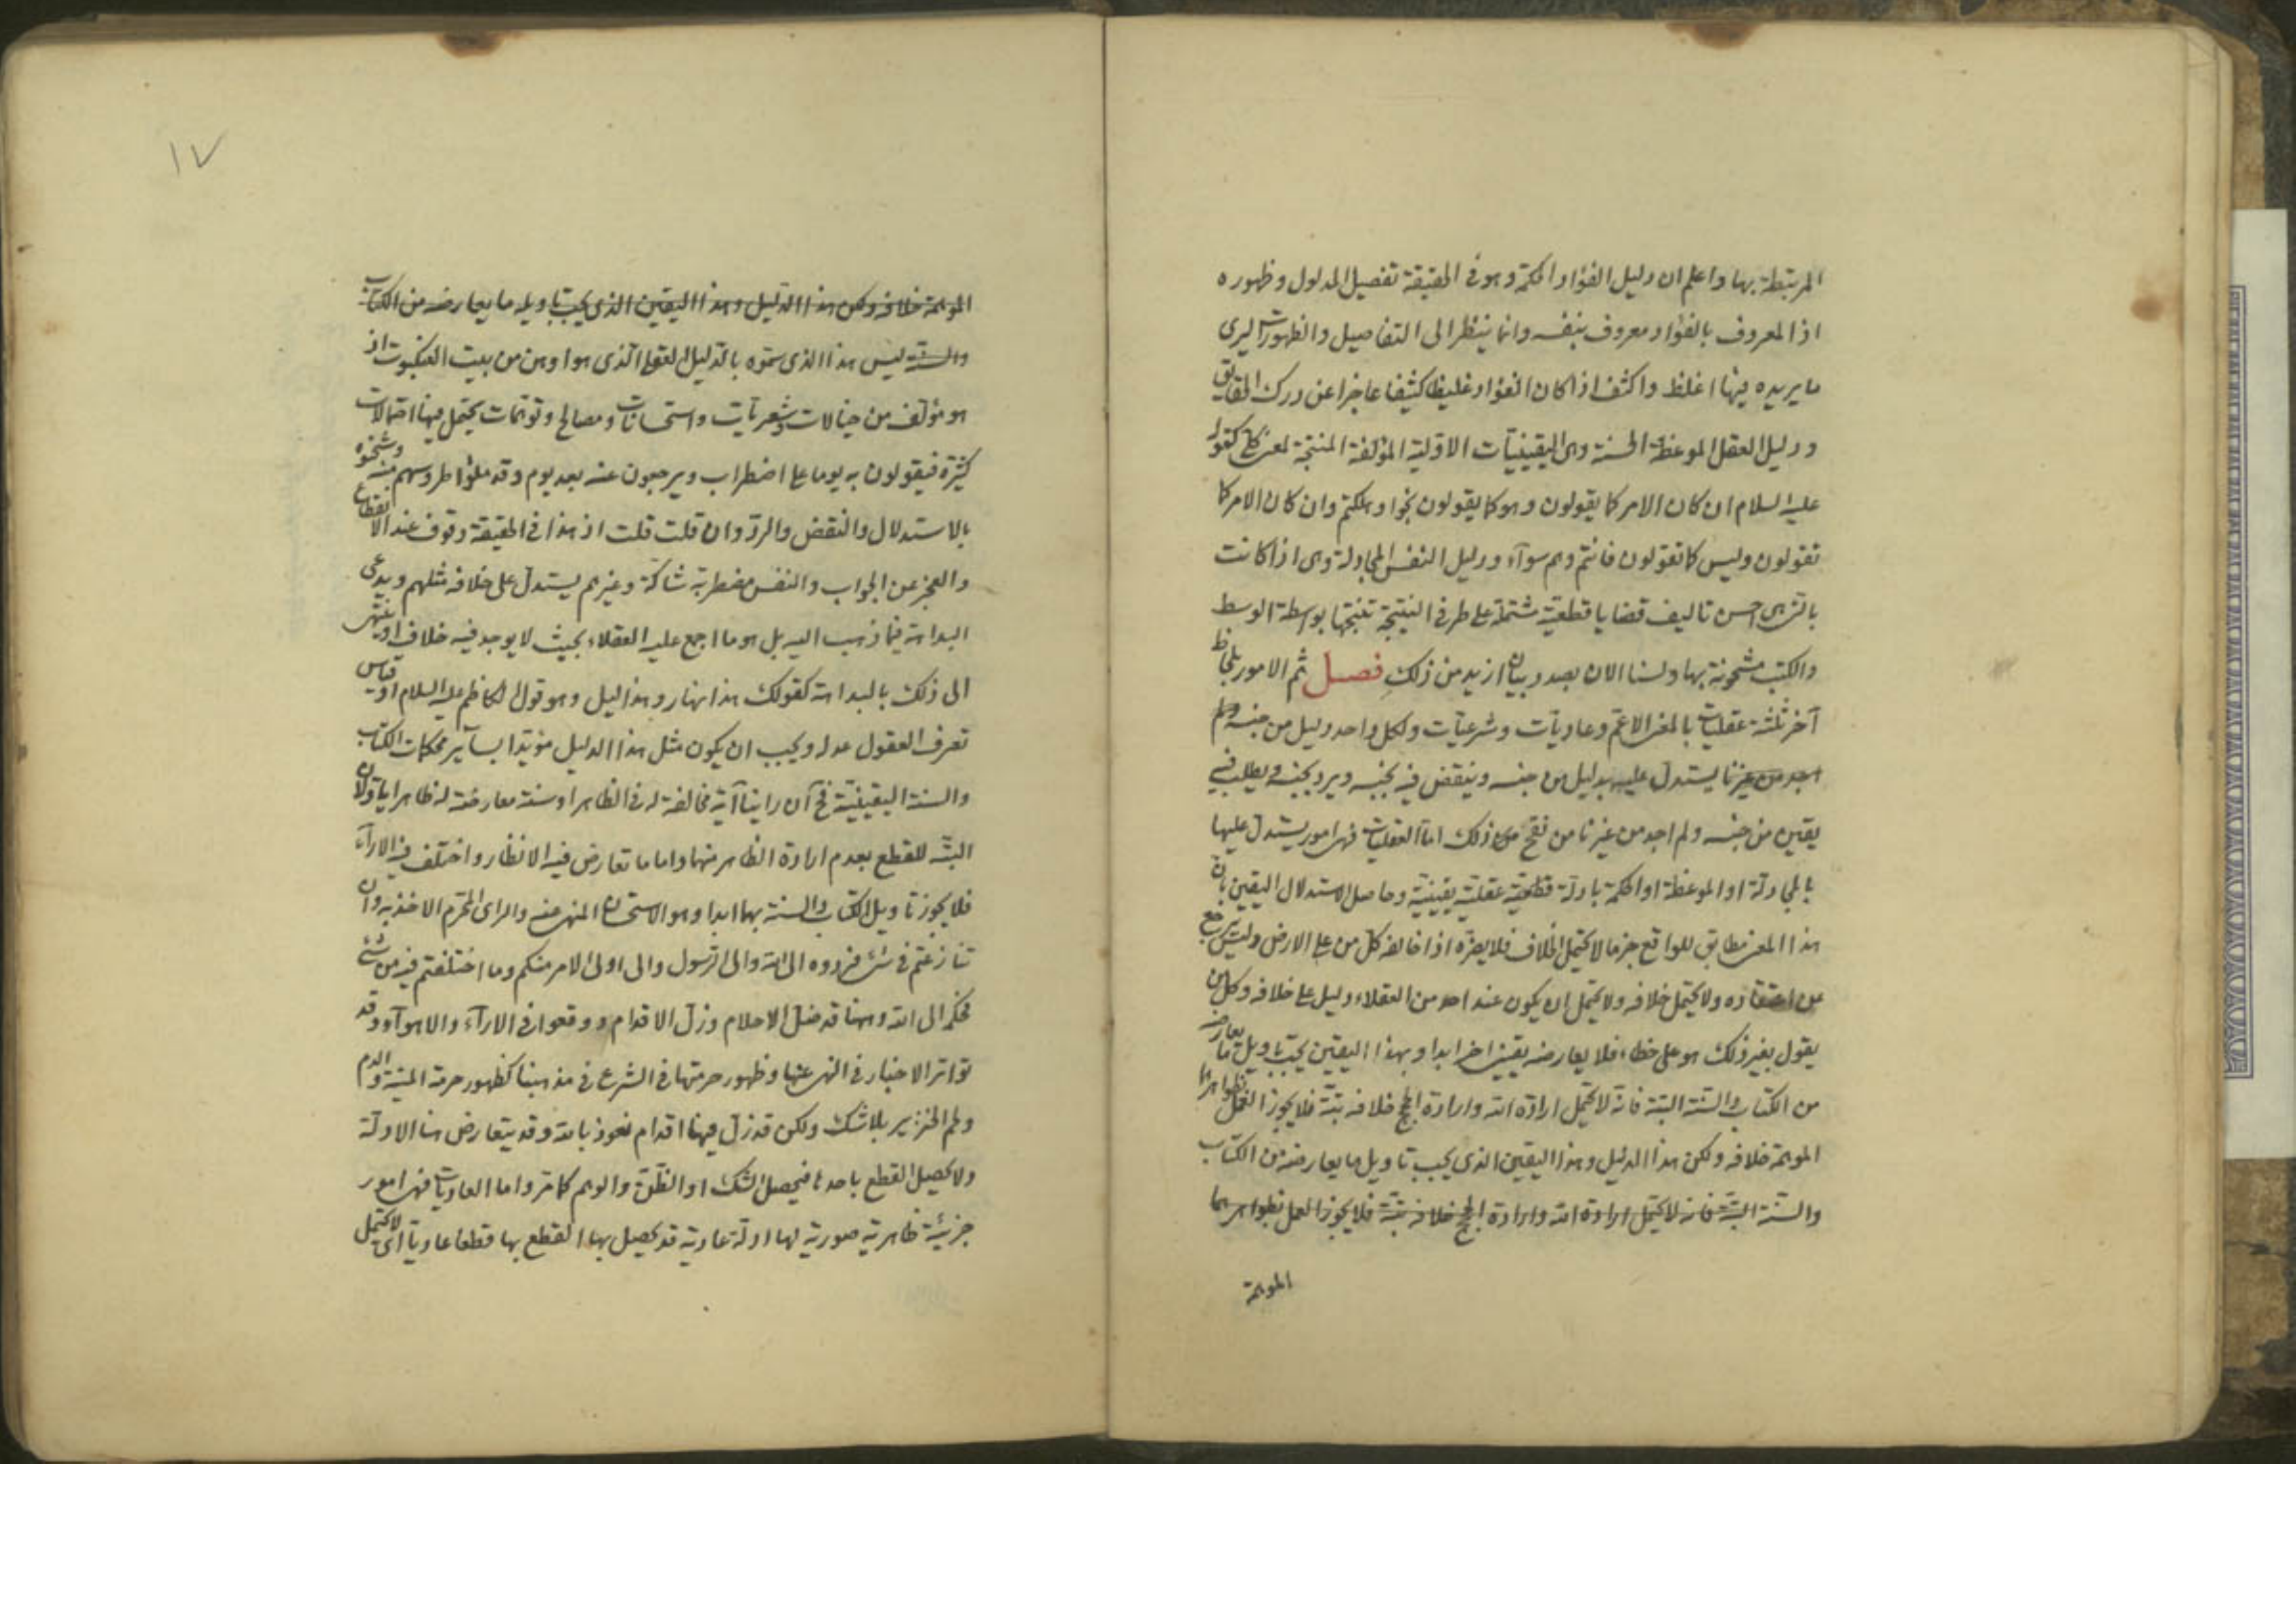 المرتبطة بها واعلم ان دليل الفؤاد الحكمة وهو فى الحقيقة تفصيل المدلول وظهوره
اذ المعروف بالفؤاد معروف بنفسه وانما ينظر الى التفاصيل والظهورات ليرى
ما يريده فيها اغلظ واكثف اذا كان الفؤاد غليظا كثيفا عاجزا عن درك الحقايق
ودليل العقل الموعظة الحسنة وهى اليقينيات الاولية المؤلفة المنتجة لمعنى كلى كقوله
عليه السلام ان كان الامر كما يقولون وهو كما يقولون نجوا وهلكتم وان كان الامر كما
تقولون وليس كما تقولون فانتم وهم سوآء ودليل النفس المجادلة وهى اذا كانت
بالتى هى احسن تاليف قضايا قطعية مشتملة على طرفى النتيجة تنتجها بواسطة الوسط
والكتب مشحونة بها ولسنا الان بصدد بيان ازيد من ذلك فصل ثم الامور بلحاظ
آخر ثلثة عقليات بالمعنى الاعم وعاديات وشرعيات ولكل واحد دليل من جنسه ولم
اجد من غيرنا يستدل عليه بدليل من جنسه وينقض فيه بجنسه ويرد بجنسه ويطلب فيه
يقين من جنسه ولم اجد من غيرنا من نقح ذلك اما العقليات فهى امور يستدل عليها
بالمجادلة او الموعظة او الحكمة بادلة قطعية عقلية يقينية وحاصل الاستدلال اليقين بان
هذا المعنى مطابق للواقع جزما لا يحتمل الخلاف فلا يضره اذا خالفه كل من على الارض وليس يرجع
عن اعتقاده ولا يحتمل خلافه ولا يحتمل ان يكون عند احد من العقلاء دليل على خلافه وكل من
يقول بغير ذلك هو على خطاء فلا يعارضه يقين اخر ابدا وبهذا اليقين يجب تاويل ما يعارضه
من الكتاب والسنة البتة فانه لا يحتمل ارادة الله وارادة الحجج خلافه بتة فلا يجوز العمل بظواهرها
الموهمة خلافه ولكن هذا الدليل وهذا اليقين الذى يجب تاويل ما يعارضه من الكتاب
والسنة البتة فانه لا يحتمل ارادة الله وارادة الحجج خلافه بتة فلا يجوز العمل بظواهرها
الموهمة
١٧
الموهمة خلافه ولكن هذا الدليل وهذا اليقين الذى يجب تاويل ما يعارضه من الكتاب
والسنة ليس هذا الذى سموه بالدليل العقلى الذى هو اوهن من بيت العنكبوت اذ
هو مؤلف من خيالات وشعريات واستحسانات ومصالح وتوهمات يحتمل فيها احتمالات
كثيرة فيقولون به يوما على اضطراب ويرجعون عنه بعد يوم وقد ملؤا طروسهم منه وشحنوه
بالاستدلال والنقض والرد وان قلت قلت اذ هذا فى الحقيقة وقوف عند الانقطاع
والعجز عن الجواب والنفس مضطربة شاكة وغيرهم يستدل على خلافه مثلهم ويدعى
البداهة فيما ذهب اليه بل هو ما اجمع عليه العقلاء بحيث لا يوجد فيه خلاف او ينتهى
الى ذلك بالبداهة كقولك هذا نهار وهذا ليل وهو قول الكاظم عليه السلام او قياس
تعرف العقول عدله ويجب ان يكون مثل هذا الدليل مؤيدا بساير محكمات الكتاب
والسنة اليقينية فح ان راينا آية مخالفة له فى الظاهر او سنة معارضة له ظاهرا ياولان
البتة للقطع بعدم ارادة الظاهر منهما واما ما تعارض فيه الانظار واختلف فيه الارآء
فلا يجوز تاويل الكتاب والسنة بهما ابدا وهو الاستحسان المنهى عنه والراى المحرم الاخذ به وان
تنازعتم فى شئ فردوه الى الله والى الرسول والى اولى الامر منكم وما اختلفتم فيه من شئ
فحكمه الى الله وههنا قد ضل الاحلام وزل الاقدام ووقعوا فى الارآء والاهوآء وقد
تواتر الاخبار فى النهى عنها وظهور حرمتها فى الشرع فى مذهبنا كظهور حرمة الميتة والدم
ولحم الخنزير بلا شك ولكن قد زل فيها اقدام نعوذ بالله وقد يتعارض هنا الادلة
ولا يحصل القطع باحدها فيحصل الشك او الظن والوهم كما مر واما العاديات فهى امور
جزئية ظاهرية صورية لها ادلة عادية قد يحصل بها القطع بها قطعا عاديا اى لا يحتمل